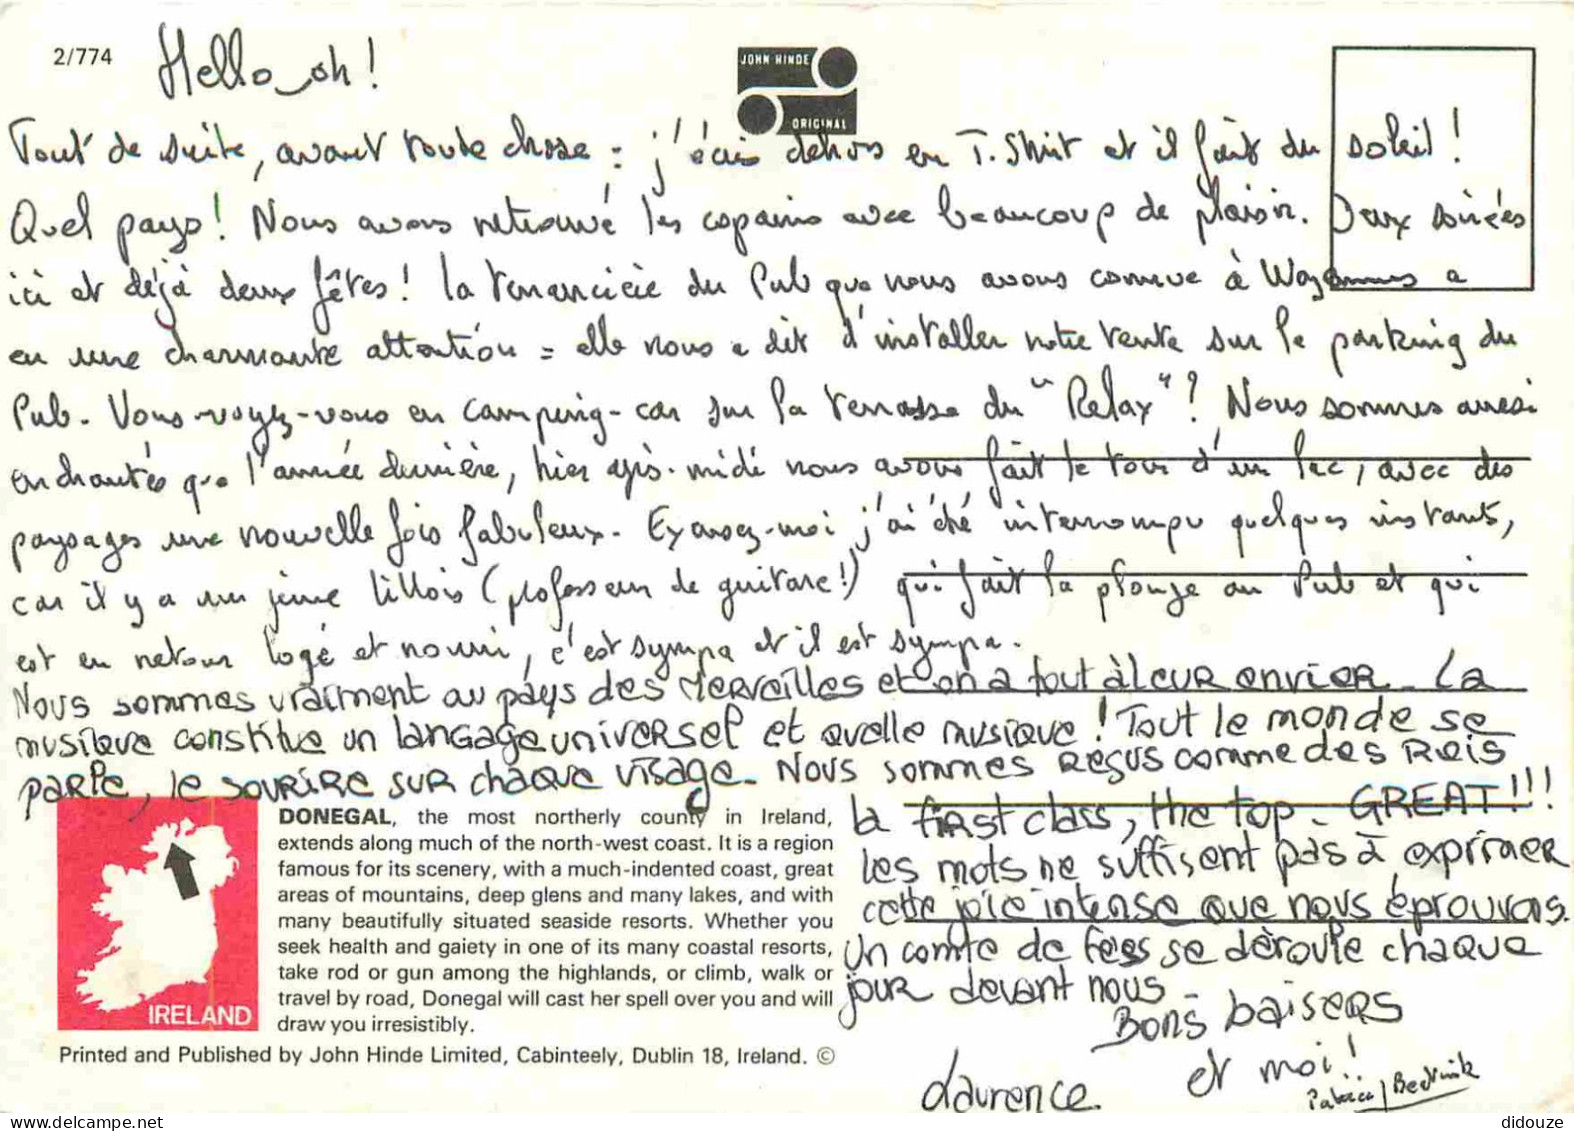 2/774
Hello oh !
JOHN HINDE
ORIGINAL
Tout de suite, avant toute chose : j'écris dehors en T. Shirt et il fait du soleil !
Quel pays ! Nous avons retrouvé les copains avec beaucoup de plaisir. Deux soirées
ici et déjà deux fêtes ! la tenancière du Pub que nous avons connue à a
eu une charmante attention : elle nous a dit d'installer notre tente sur le parking du
Pub. Vous-voyez-vous en camping-car sur la terrasse du "Relax" ? Nous sommes aussi
enchantés que l'année dernière, hier après-midi nous avons fait le tour d'un lac, avec des
paysages une nouvelle fois fabuleux. Excusez-moi j'ai été interrompu quelques instants,
car il y a un jeune lillois (professeur de guitare !) qui fait la plonge au Pub et qui
est en retour logé et nourri, c'est sympa et il est sympa.
Nous sommes vraiment au pays des Merveilles et on a tout à leur envier. La
musique constitue un langage universel et quelle musique ! Tout le monde se
parle, le sourire sur chaque visage. Nous sommes reçus comme des Rois
la first class, the top. GREAT !!!
les mots ne suffisent pas à exprimer
cette joie intense que nous éprouvons.
Un comte de fées se déroule chaque
jour devant nous.
Bons baisers
et moi !
Laurence
DONEGAL, the most northerly county in Ireland,
extends along much of the north-west coast. It is a region
famous for its scenery, with a much-indented coast, great
areas of mountains, deep glens and many lakes, and with
many beautifully situated seaside resorts. Whether you
seek health and gaiety in one of its many coastal resorts,
take rod or gun among the highlands, or climb, walk or
travel by road, Donegal will cast her spell over you and will
draw you irresistibly.
IRELAND
Printed and Published by John Hinde Limited, Cabinteely, Dublin 18, Ireland. ©
didouze